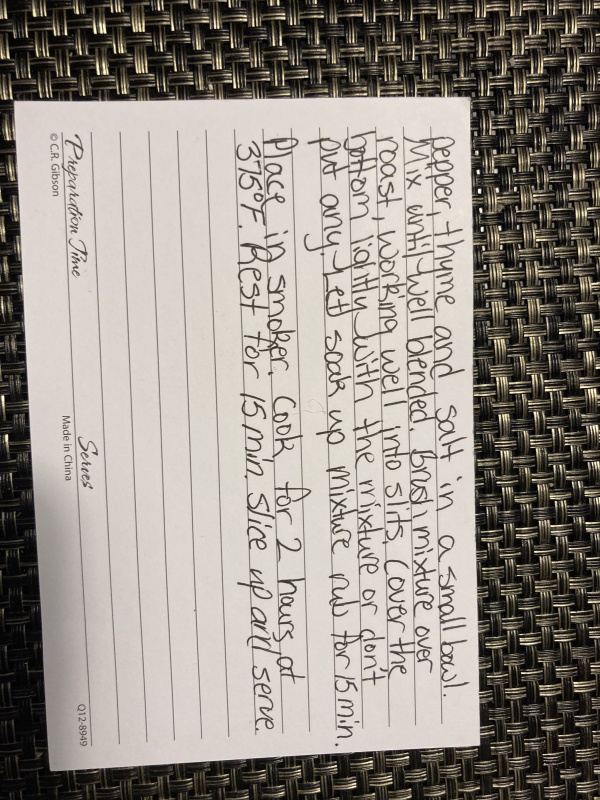 pepper, thyme and salt in a small bowl.
Mix until well blended. Brush mixture over
roast, working well into slits. Cover the
bottom lightly with the mixture or don't
put any. Let soak up mixture rub for 15 min.
Place in smoker. Cook for 2 hours at
375°F. Rest for 15 min. Slice up and serve.
Preparation Time Serves
© C.R. Gibson Made in China Q12-8949